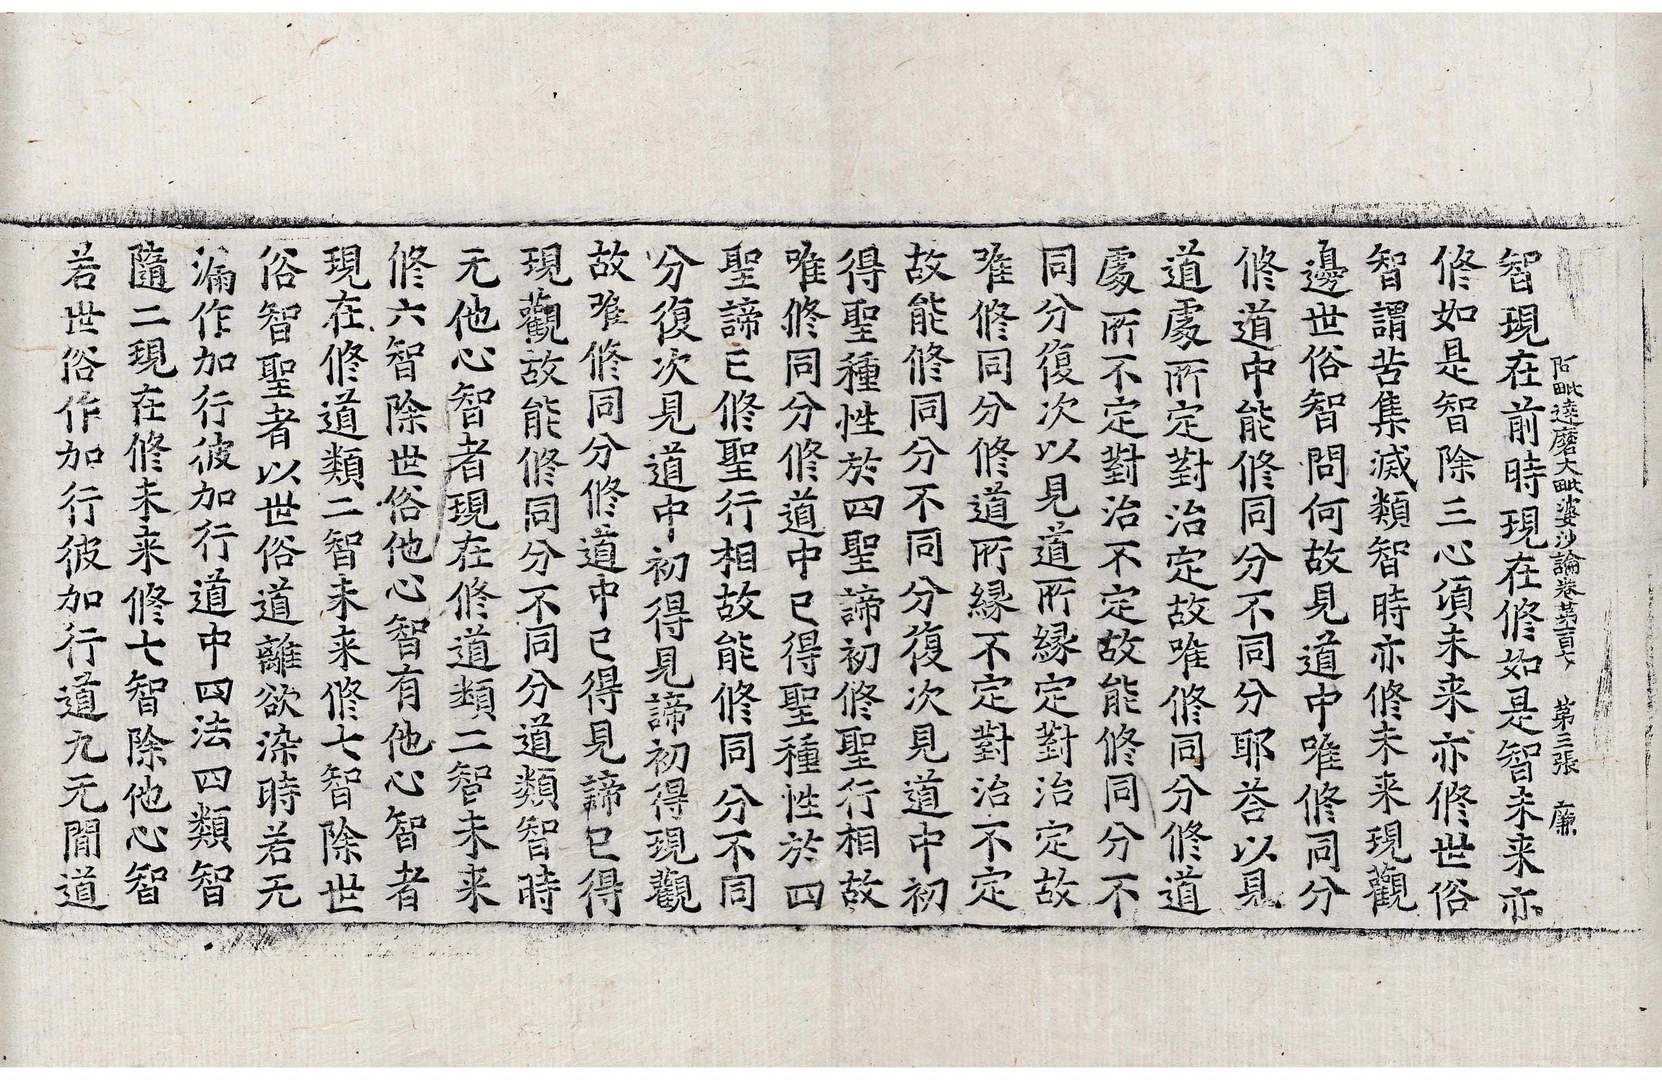 阿毗達磨大毗婆沙論卷第百七 第三張 廉
智現在前時現在修如是智未来亦
修如是智除三心頃未来亦修世俗
智謂苦集滅類智時亦修未来現觀
邊世俗智問何故見道中唯修同分
修道中能修同分不同分耶荅以見
道處所定對治定故唯修同分修道
處所不定對治不定故能修同分不
同分復次以見道所緣定對治定故
唯修同分修道所緣不定對治不定
故能修同分不同分復次見道中初
得聖種性於四聖諦初修聖行相故
唯修同分修道中已得聖種性於四
聖諦已修聖行相故能修同分不同
分復次見道中初得見諦初得現觀
故唯修同分修道中已得見諦已得
現觀故能修同分不同分道類智時
无他心智者現在修道類二智未来
修六智除世俗他心智有他心智者
現在修道類二智未来修七智除世
俗智聖者以世俗道離欲染時若无
漏作加行彼加行道中四法四類智
隨二現在修未来修七智除他心智
若世俗作加行彼加行道九无閒道